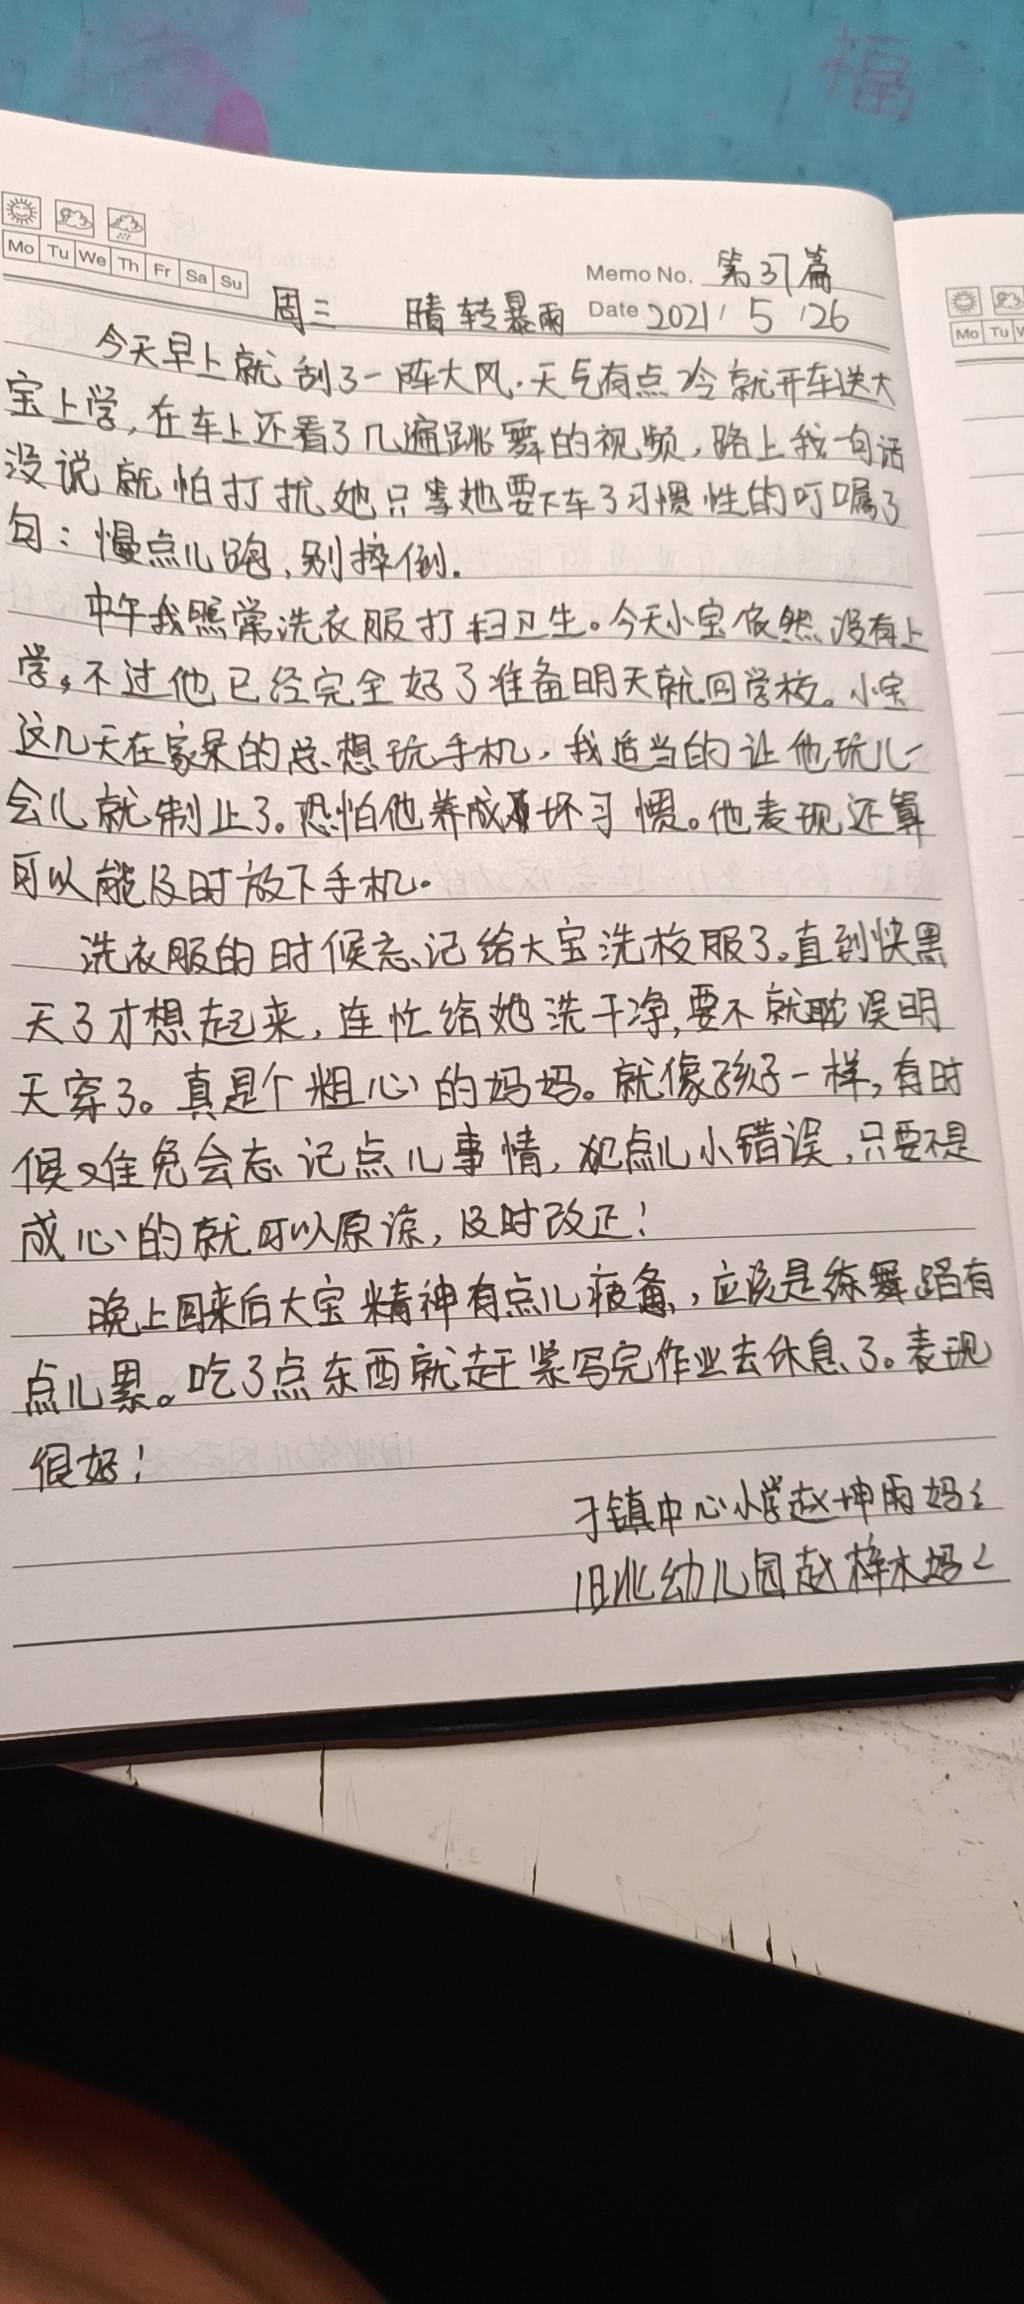 福
Mo Tu We Th Fr Sa Su
Memo No. 第37篇
周三 晴转暴雨 Date 2021/5/26
Mo Tu
今天早上就刮了一阵大风.天气有点冷就开车送大
宝上学,在车上还看了几遍跳舞的视频,路上我句话
没说就怕打扰她只等她要下车了习惯性的叮嘱了
句:慢点儿跑,别摔倒.
中午我照常洗衣服打扫卫生。今天小宝依然没有上
学,不过他已经完全好了准备明天就回学校。小宝
这几天在家呆的总想玩手机,我适当的让他玩儿一
会儿就制止了。恐怕他养成坏习惯。他表现还算
可以能及时放下手机.
洗衣服的时候忘记给大宝洗校服了。直到快黑
天了才想起来,连忙给她洗干净,要不就耽误明
天穿了。真是个粗心的妈妈。就像孩子一样,有时
候难免会忘记点儿事情,犯点儿小错误,只要不是
成心的就可以原谅,及时改正!
晚上回来后大宝精神有点儿疲惫,应该是练舞蹈有
点儿累。吃了点东西就赶紧写完作业去休息了。表现
很好!
刁镇中心小学赵坤雨妈妈
旧北幼儿园赵梓木妈妈